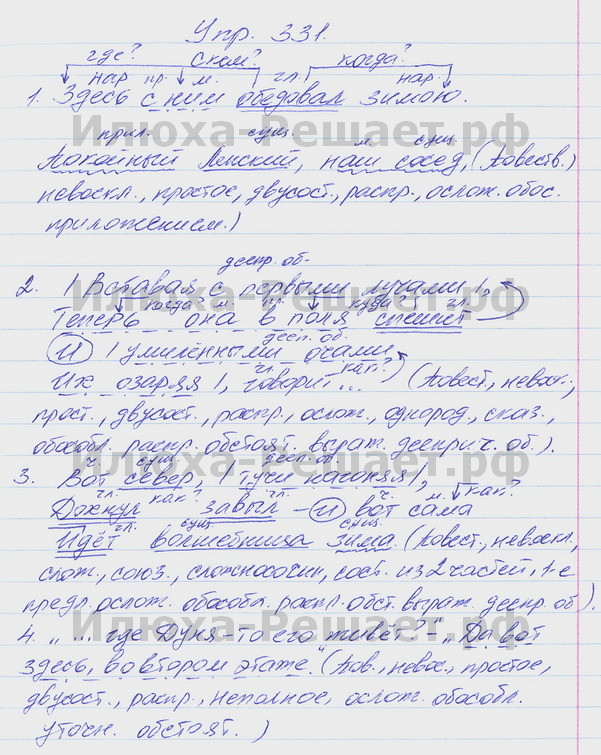 Упр. 331.
где? с кем? когда?
нар. пр. м. гл. нар.
1. Здесь с ним обедовал зимою.
прил. сущ. м. сущ.
Покойный Ленский, наш сосед, (Повеств.)
невоскл., простое, двусост., распр., ослож. обос.
приложением.)
деепр. об.
2. | Вставая с первыми лучами |,
когда? м. пр. куда? гл.
Теперь она в поля спешит
дееп. об.
И | умилёнными очами
гл. как?
Их озаряя |, говорит... (Повест., невоск.,
прост., двусост., распр., ослож., однород. сказ.,
обособл. распр. обстоят. выраж. дееприч. об.).
ч. сущ. деепр. об.
3. Вот север, | тучи нагоняя |,
гл. как? гл. ч. м. как?
Дохнул завыл - и вот сама
гл. сущ. сущ.
Идёт волшебница зима. (Повест., невоскл.,
слож., союз., сложносочин., сост. из 2 частей, 1-е
предл. ослож. обособл. распр. обст. выраж. дееп. об.).
4. „... где Дуня-то его живёт?" - „Да вот
здесь, во втором этаже." (Пов., невос., простое,
двусост., распр., неполное, ослож. обособл.
уточн. обстоят. )
Илюха-Решает.рф
Илюха-Решает.рф
Илюха-Решает.рф
Илюха-Решает.рф